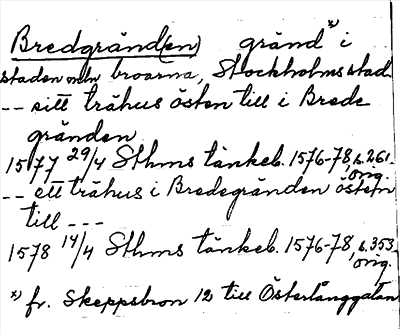 Bredgränd(en) gränd *) i
staden mln broarna, Stockholms stad.
-- sitt trähus östen till i Brede
gränden
1577 29/4 Sthms tänkeb. 1576-78, s. 261.
orig.
-- ett trähus i Bredegränden östen
till ---
1578 14/4 Sthms tänkeb. 1576-78, s. 353.
orig.
*) fr. Skeppsbron 12 till Österlånggatan